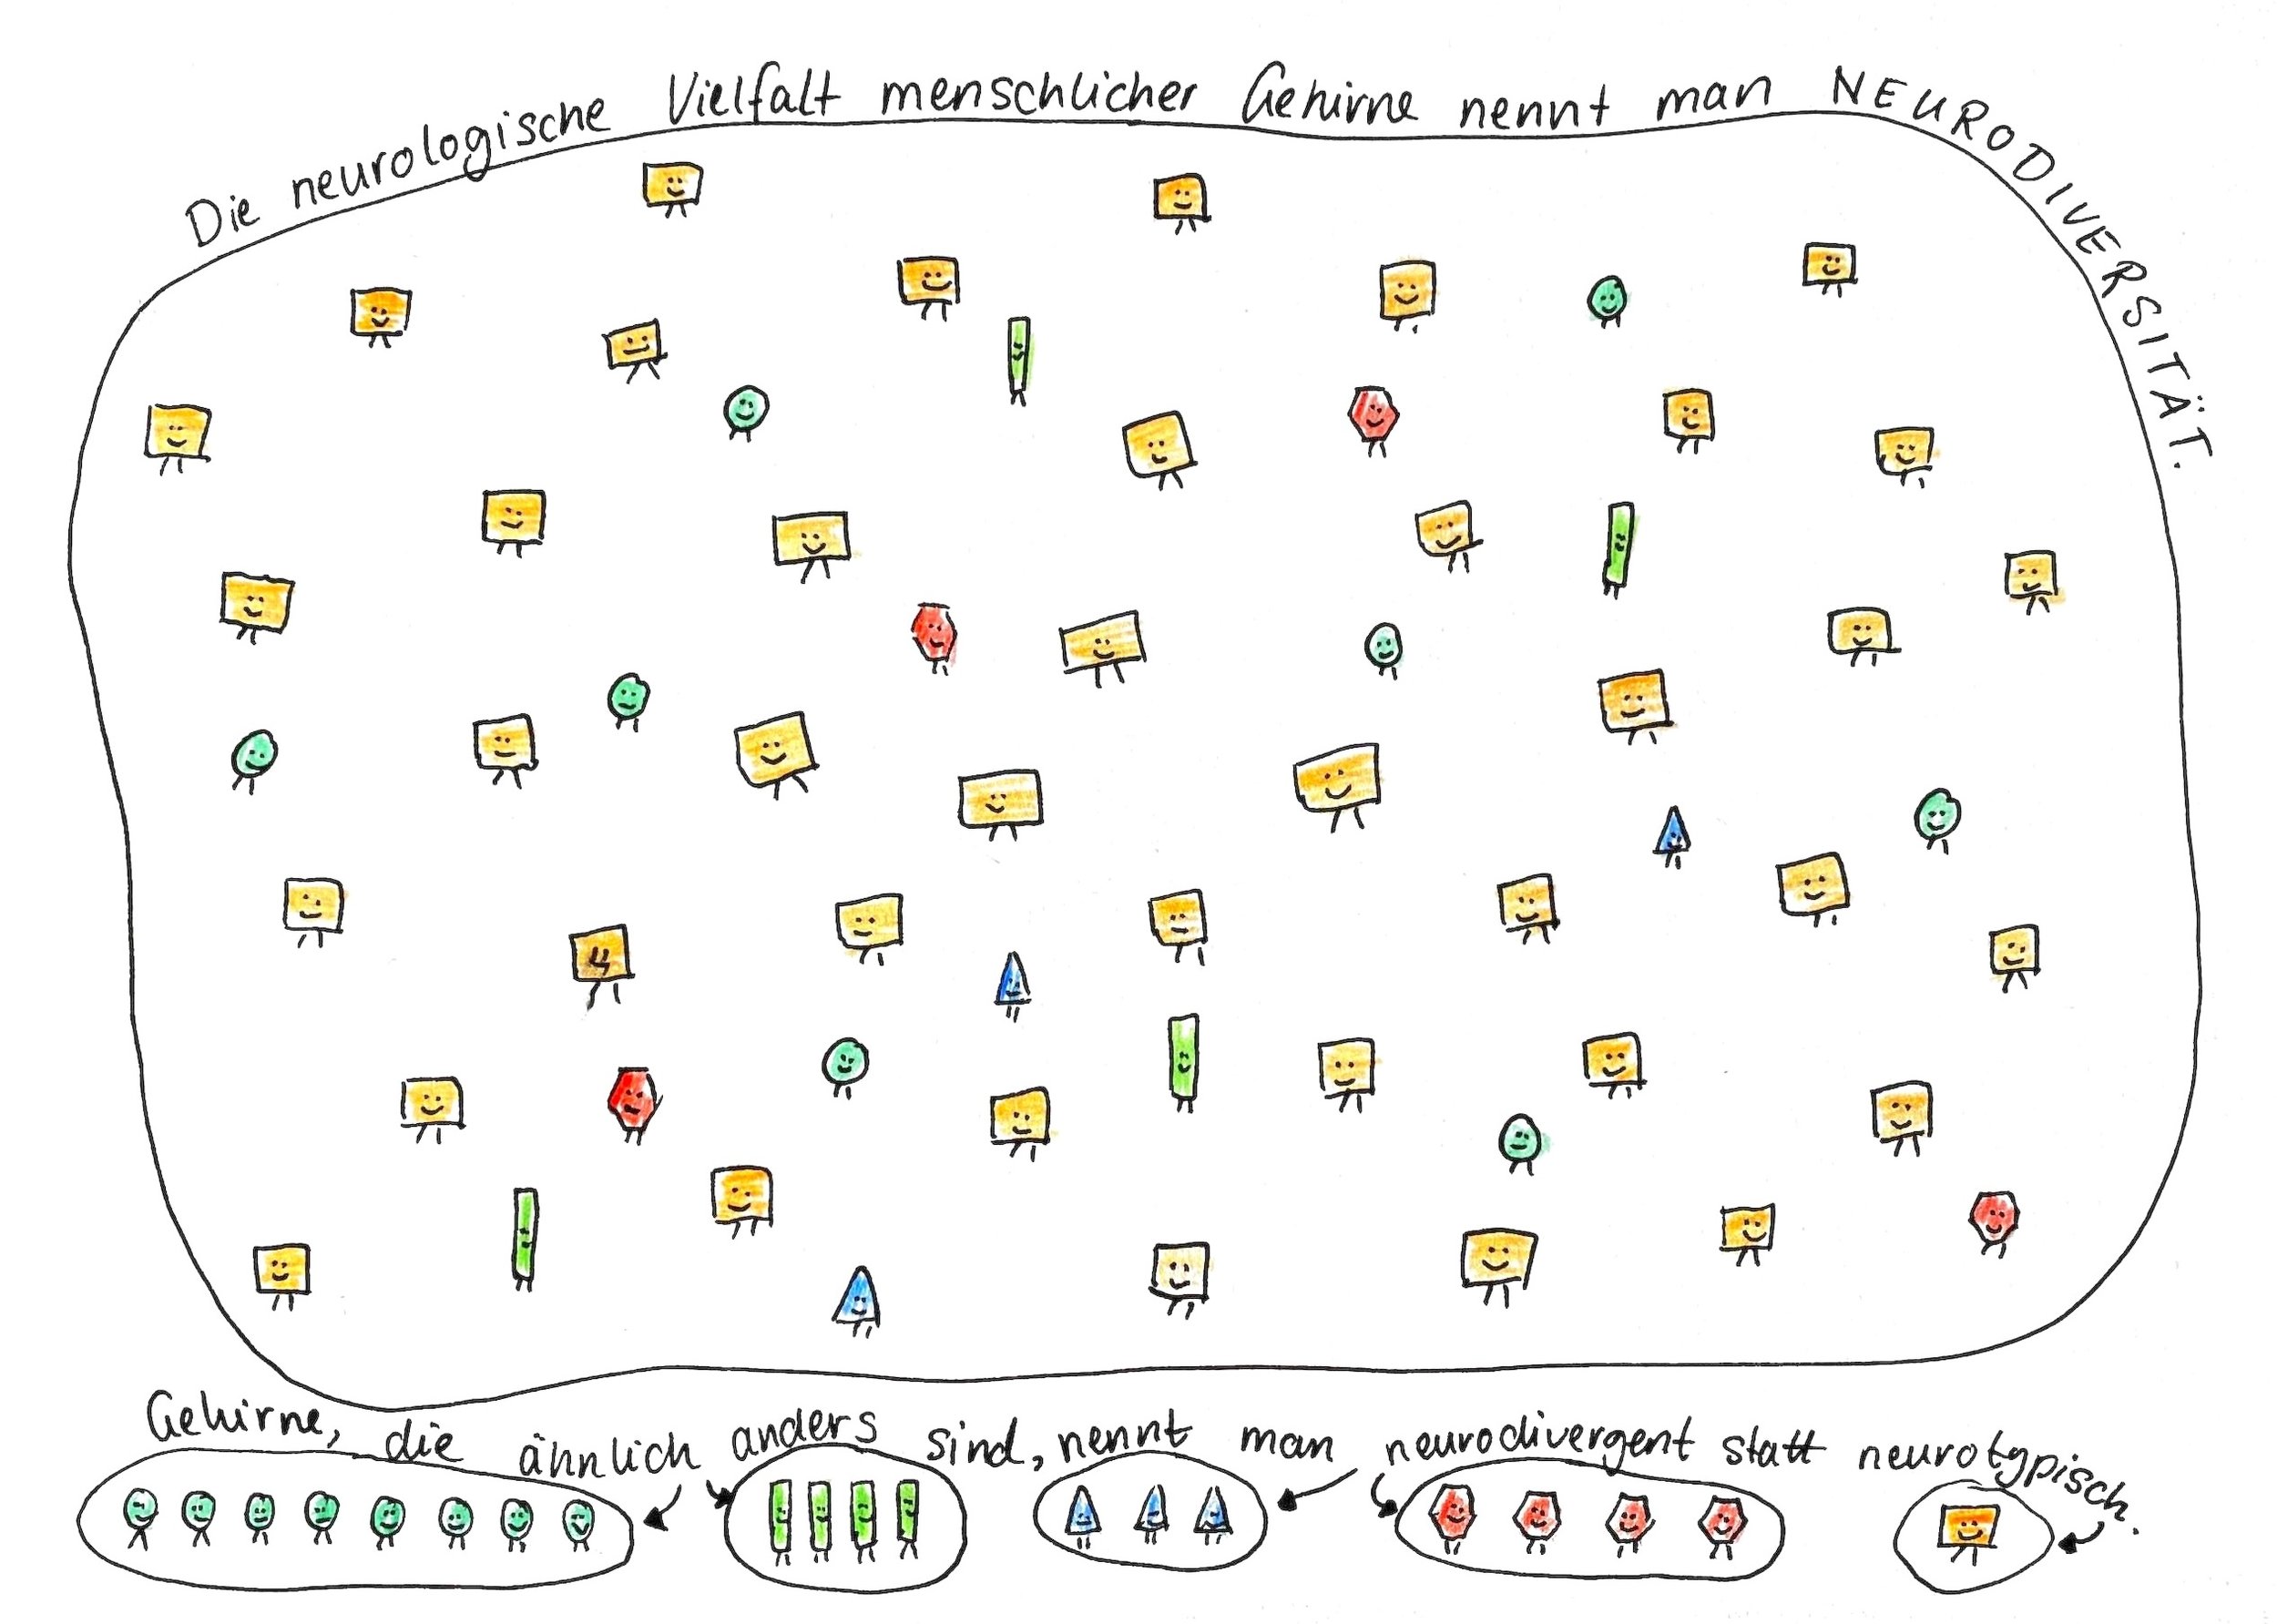 Die neurologische Vielfalt menschlicher Gehirne nennt man NEURODIVERSITÄT.
Gehirne, die ähnlich anders sind, nennt man neurodivergent statt neurotypisch.